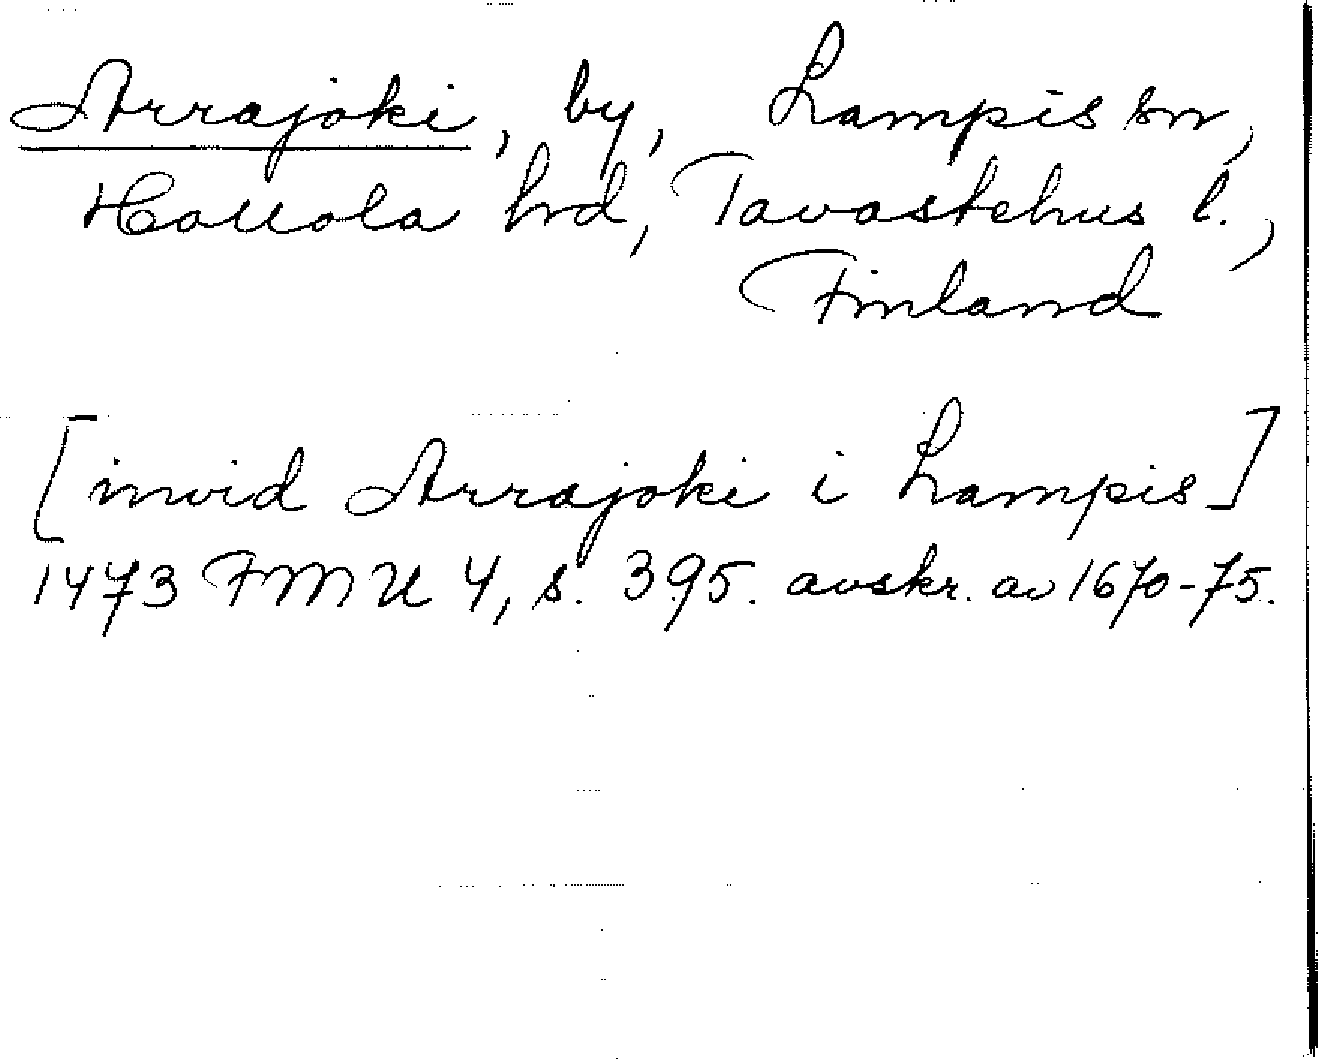 Arrajoki, by, Lampis sn,
Hollola hrd, Tavastehus l.,
Finland
[invid Arrajoki i Lampis]
1473 FMU 4, s. 395. avskr. av 1670-75.